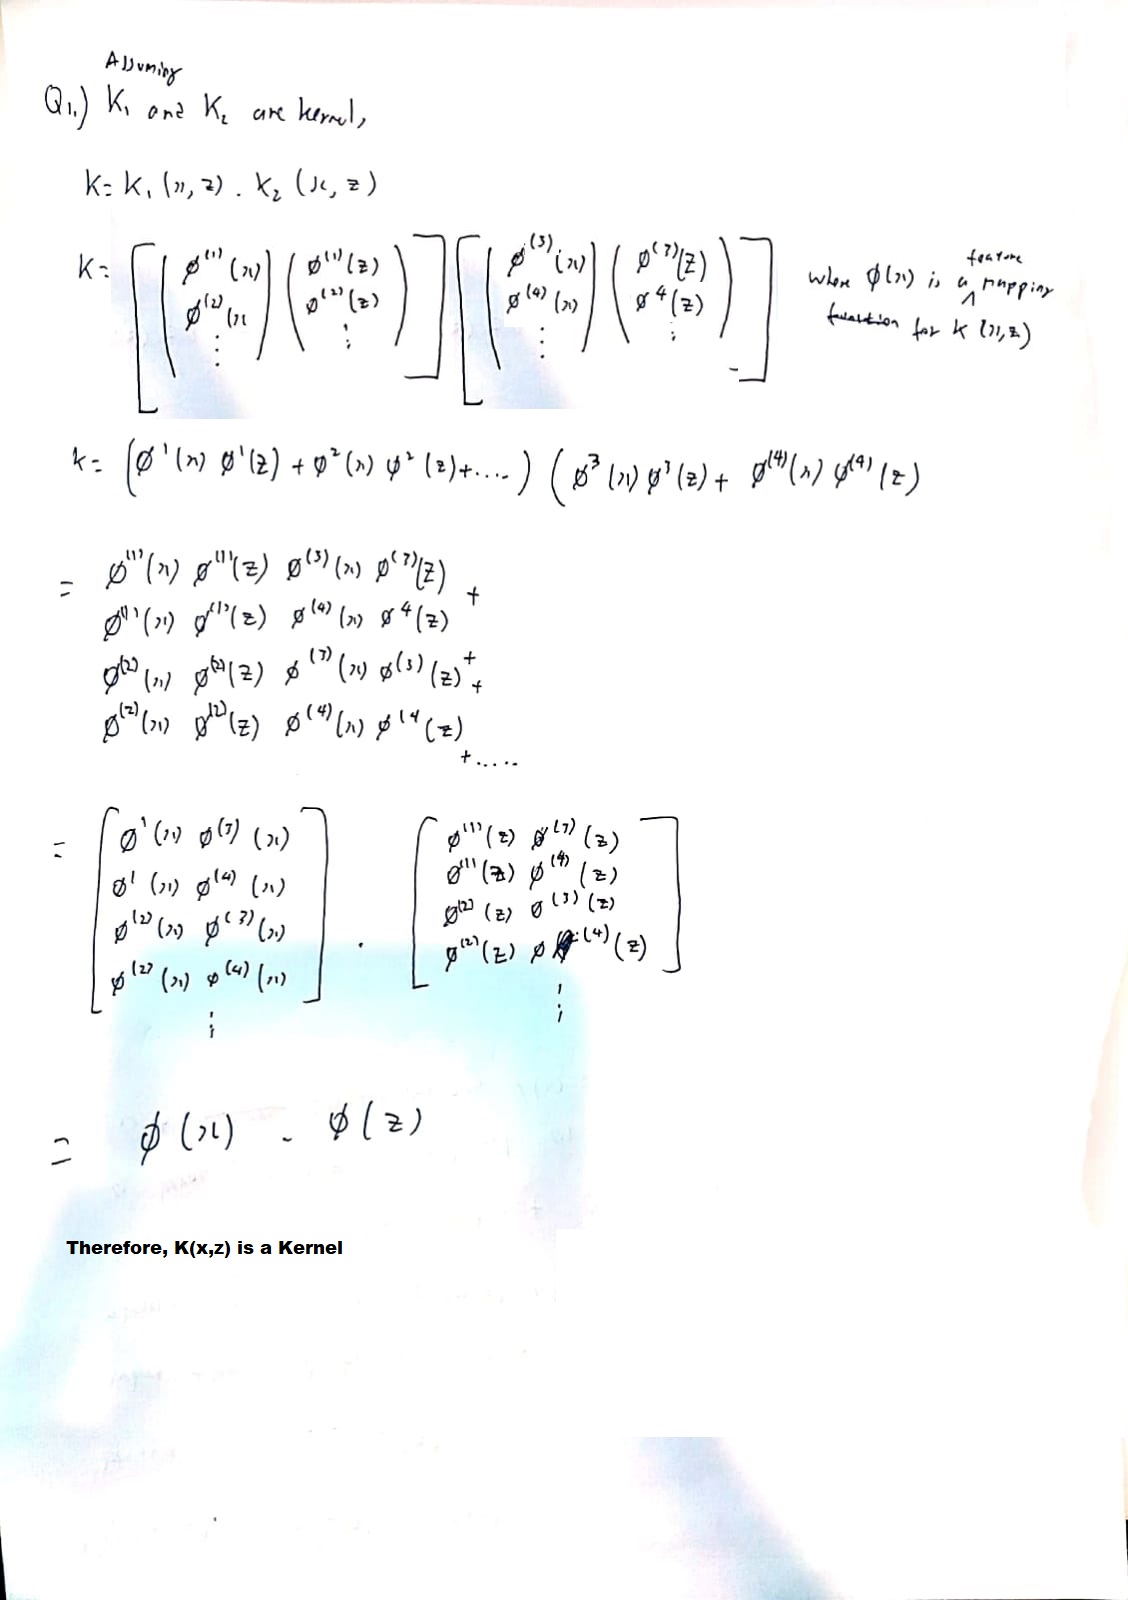 Assuming
Q1.) K₁ and K₂ are kernel,
K = K₁(x, z) . K₂(x, z)
K = [(ϕ⁽¹⁾(x) ϕ⁽²⁾(x ⋮) (ϕ⁽¹⁾(z) ϕ⁽²⁾(z) ⋮)] [(ϕ⁽³⁾(x) ϕ⁽⁴⁾(x) ⋮) (ϕ⁽³⁾(z) ϕ⁴(z) ⋮)]
feature
where ϕ(x) is a mapping
function for K(x, z)
k = (ϕ¹(x) ϕ¹(z) + ϕ²(x) ϕ²(z) + ....) (ϕ³(x) ϕ³(z) + ϕ⁽⁴⁾(x) ϕ⁽⁴⁾(z)
= ϕ⁽¹⁾(x) ϕ⁽¹⁾(z) ϕ⁽³⁾(x) ϕ⁽³⁾(z) +
ϕ⁽¹⁾(x) ϕ⁽¹⁾(z) ϕ⁽⁴⁾(x) ϕ⁴(z)
+
ϕ⁽²⁾(x) ϕ⁽²⁾(z) ϕ⁽³⁾(x) ϕ⁽³⁾(z) +
ϕ⁽²⁾(x) ϕ⁽²⁾(z) ϕ⁽⁴⁾(x) ϕ⁽⁴(z)
+ .....
= [ϕ¹(x) ϕ⁽³⁾(x) . [ϕ⁽¹⁾(z) ϕ⁽³⁾(z)
ϕ¹(x) ϕ⁽⁴⁾(x) ϕ⁽¹⁾(z) ϕ⁽⁴⁾(z)
ϕ⁽²⁾(x) ϕ⁽³⁾(x) ϕ⁽²⁾(z) ϕ⁽³⁾(z)
ϕ⁽²⁾(x) ϕ⁽⁴⁾(x)] ϕ⁽²⁾(z) ϕ⁽⁴⁾(z)]
⋮ ⋮
= ϕ(x) . ϕ(z)
Therefore, K(x,z) is a Kernel